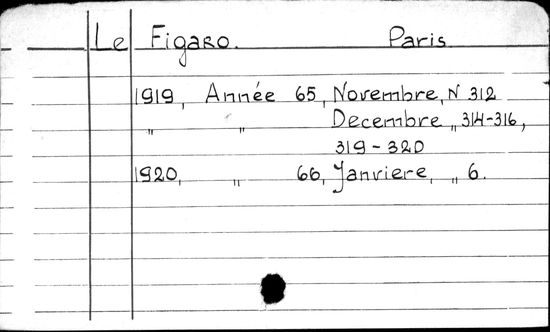 Le Figaro. Paris.
1919, Année 65, Novembre, N 312
" " Decembre " 314-316,
319-320
1920, " 66, Janviere, " 6.